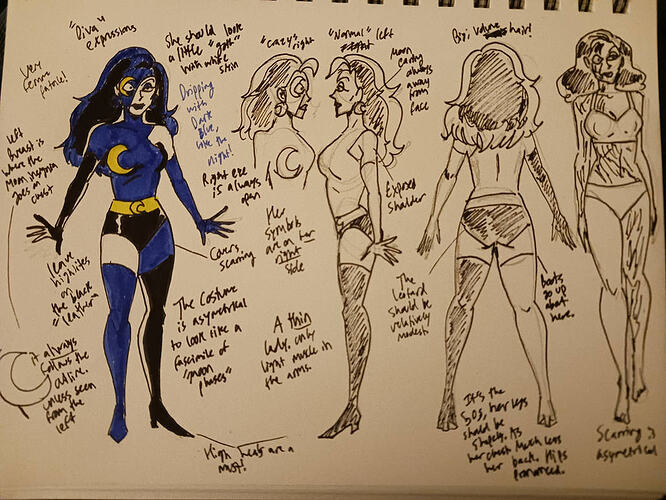 "Diva"
expressions
Very
femme
fatale!
She should look
a little "goth"
with white
skin
Dripping
with
Dark
Blue,
like the
night!
Right eye
is always
open
"Crazy" right
"Normal" left
Moon
earing
always
away
from
face
Big, volume
hair!
left
Breast is
where the
Moon
goes on
chest
leave
highlites
on
the black
"leather"
it always
follows the
outline
unless seen
from the
left
Covers
scarring
Her
symbols
are on her
right
side
Exposed
Shoulder
The costume
is asymetrical
to look like a
facsimile of
"moon
phases"
A thin
lady, only
light muscle in
the arms.
The
leotard
should be
relatively
modest
Boots
go up
about
here.
High heels are a
must!
It's the
50s, her legs
should be
shapely. As
her chest. Much less
her back. Hips
pronounced.
Scarring is
asymetrical